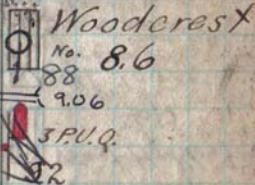 Woodcrest
No. 8.6
88
9.06
3 P.U.Q.
22